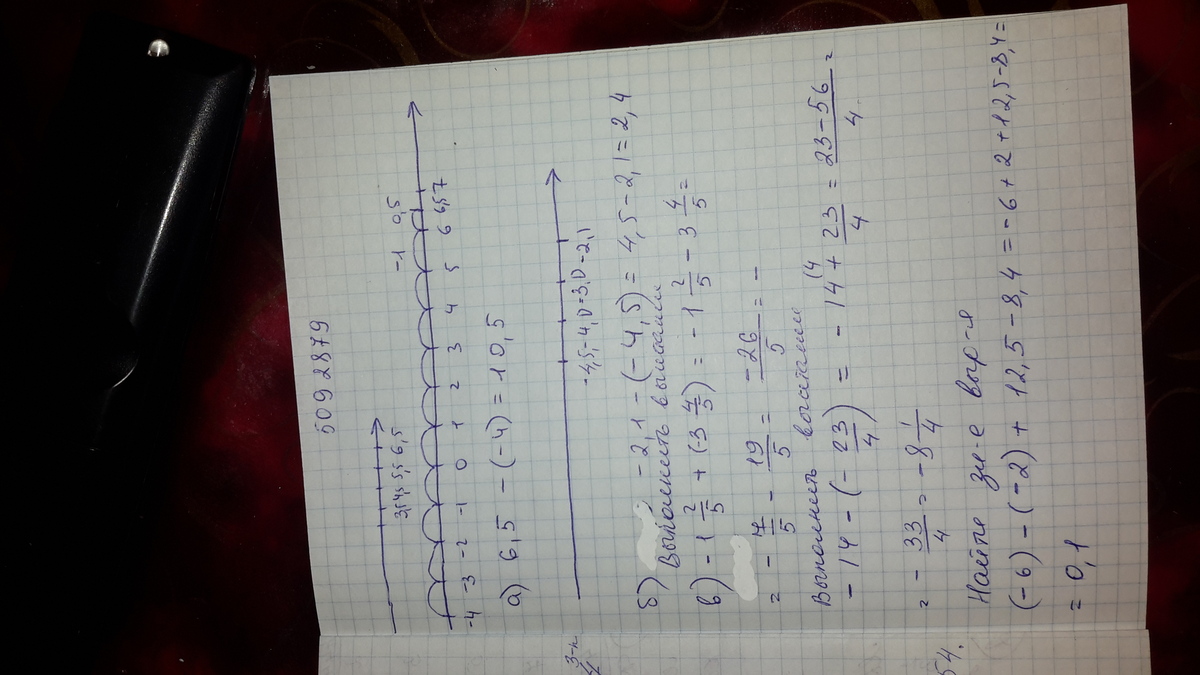 5092879
5,5 6,5
-1 0,5
-4 -3 -2 -1 0 1 2 3 4 5 6 6,5 7
а) 6,5 - (-4) = 10,5
-4,5 -4,0 -3,0 -2,1
б) -2,1 - (-4,5) = 4,5 - 2,1 = 2,4
Выполнить вычитание
в) -1 2/5 + (-3 4/5) = -1 2/5 - 3 4/5 =
= - 7/5 - 19/5 = -26/5 = -
Выполнить вычитание
-14 - (- 23/4) = -14 (4 + 23/4 = 23-56/4 =
= - 33/4 = -8 1/4
Найти зн-е выр-я
(-6) - (-2) + 12,5 - 8,4 = -6 + 2 + 12,5 - 8,4 =
= 0,1
3-х
54.